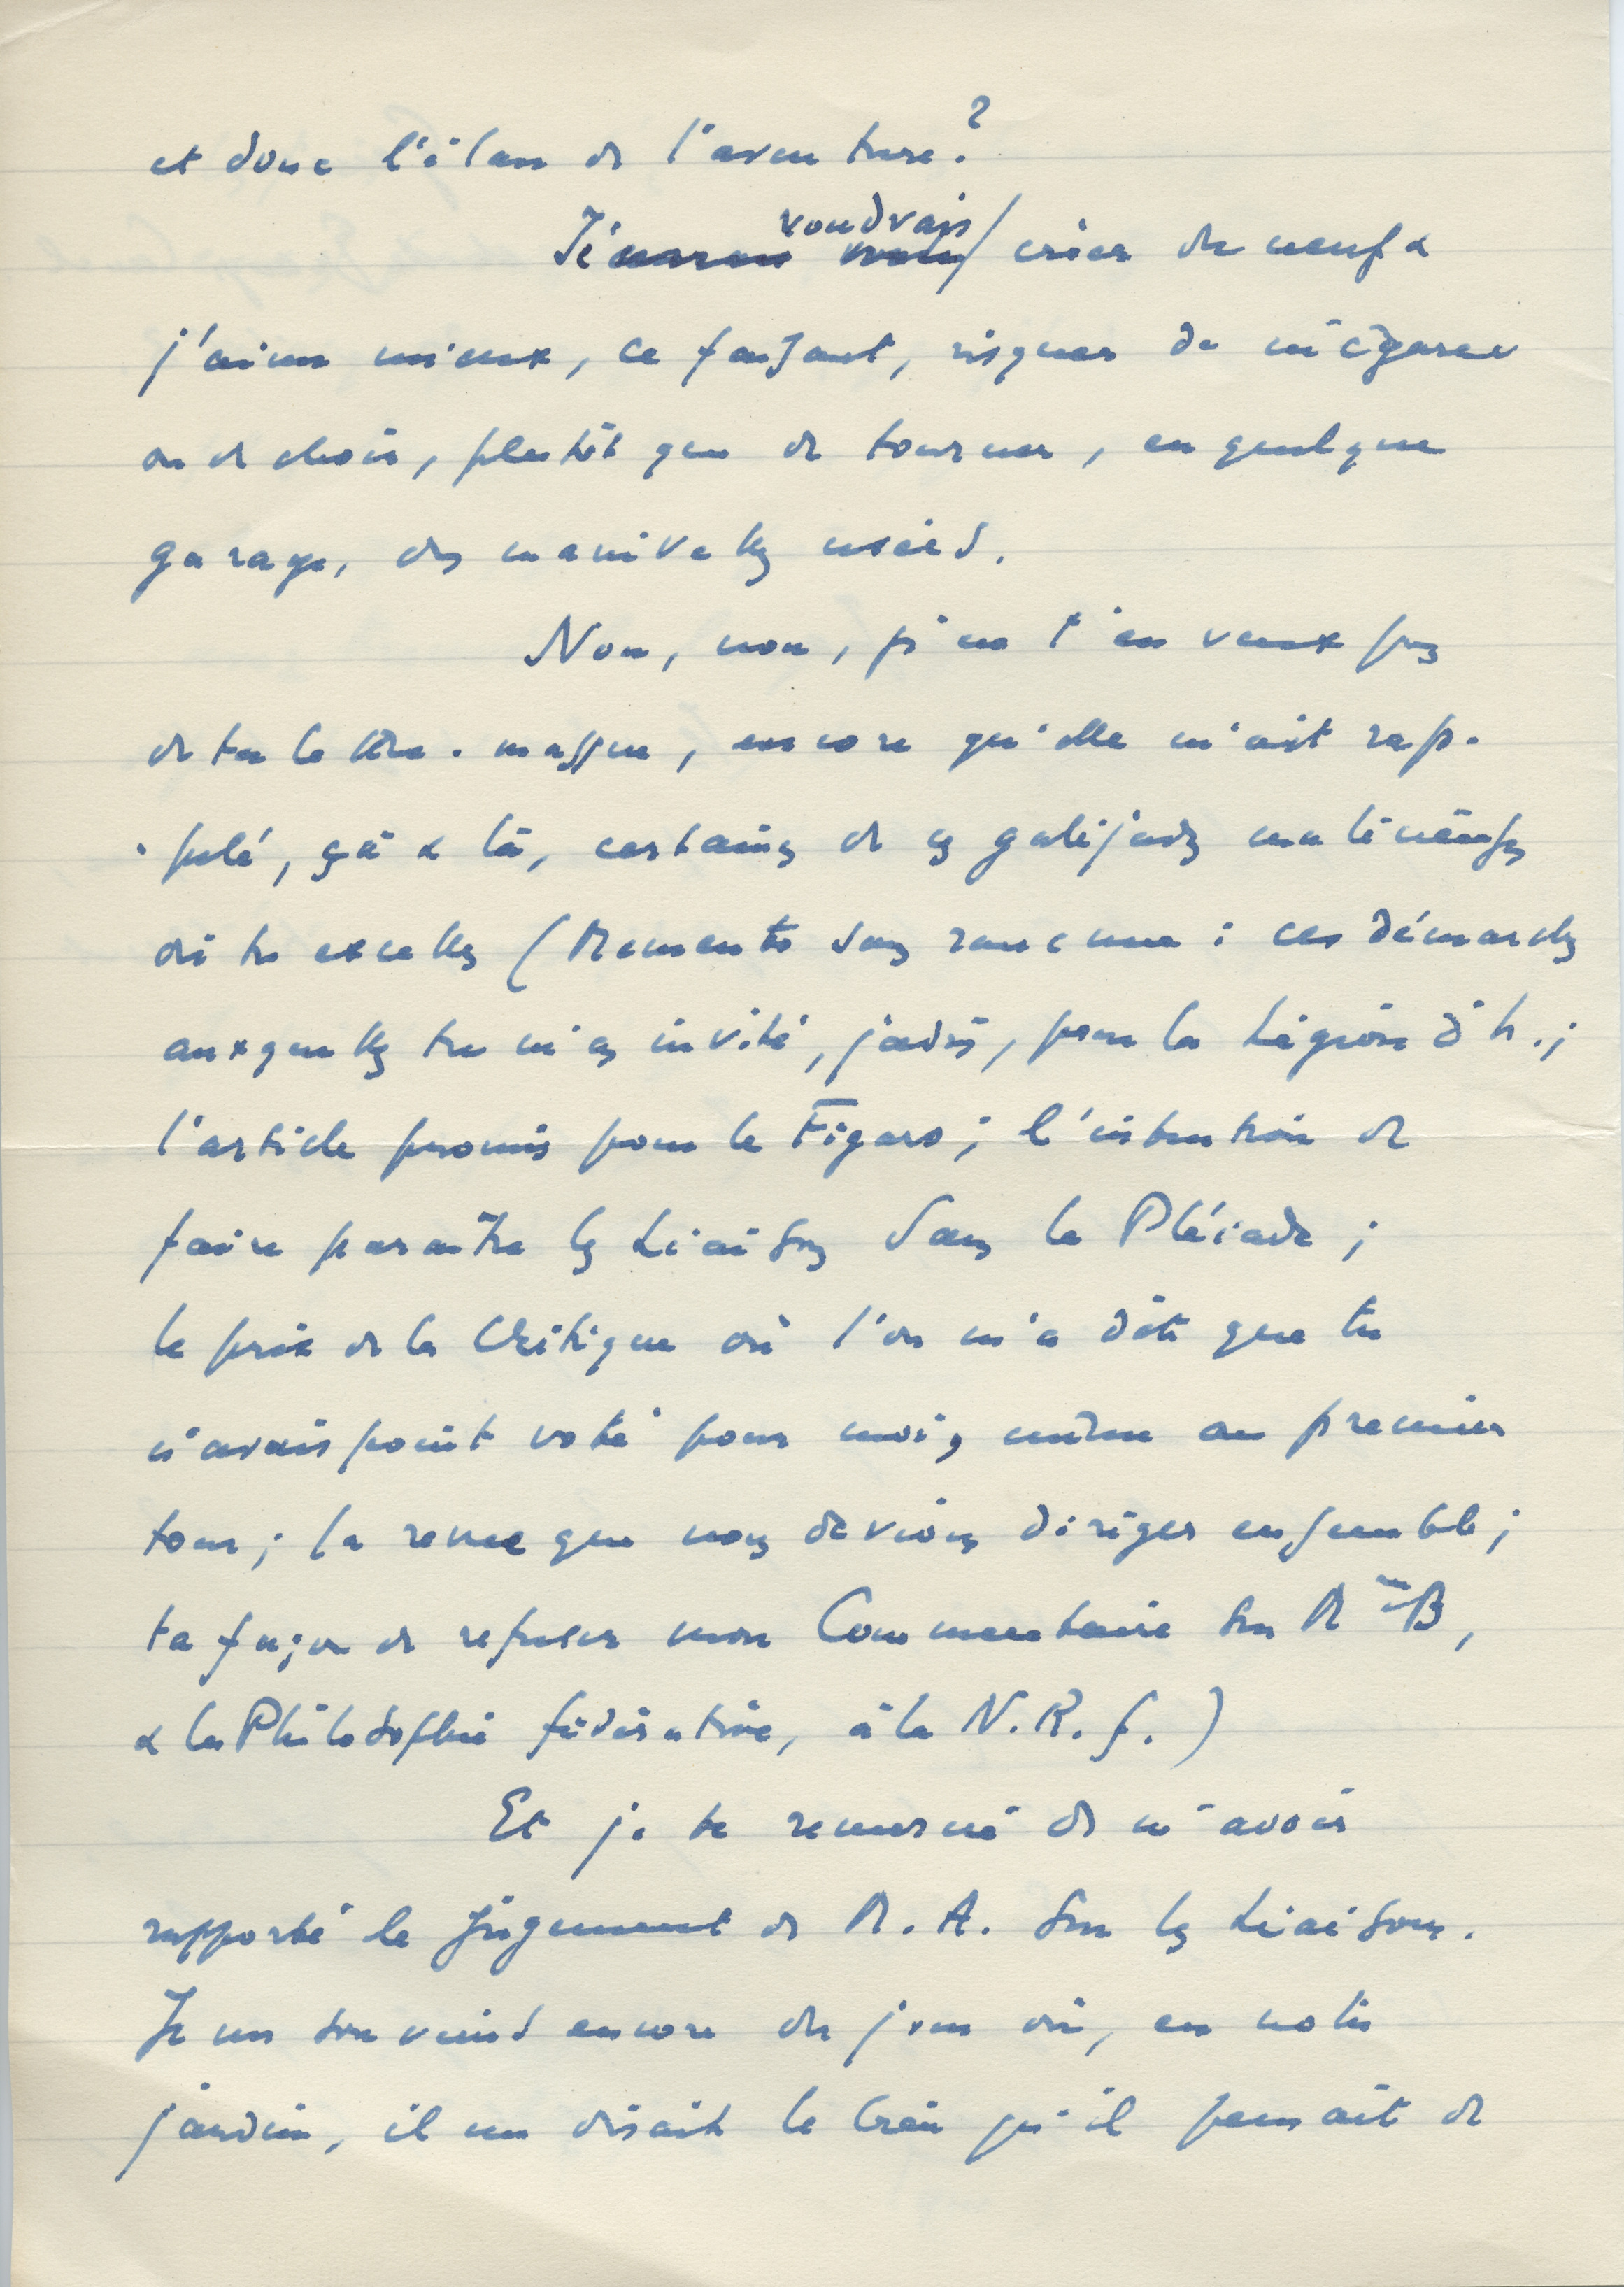 et donc l'élan de l'aventure ?
Je voudrais créer du neuf &
j'aime mieux, ce faisant, risquer de m'égarer
ou de choir, plutôt que de tourner, en quelque
garage, des manivelles usées.
Non, non, je ne t'en veux pas
de ta lettre-masque, encore qu'elle m'ait rap-
-pelé, çà & là, certaines de ces galéjades
où tu excelles (Memento sans rancune : ces démarches
auxquelles tu m'as invité, jadis, pour la Légion d'h. ;
l'article promis pour le Figaro ; l'intention de
faire paraître les Liaisons dans la Pléiade ;
le prix de la Critique où l'on m'a dit que tu
n'avais point voté pour moi, même au premier
tour ; la revue que nous devions diriger ensemble ;
ta façon de refuser mon Commentaire sur Mme B,
& la Philosophie fédérative, à la N.R.f.)
Et je te remercie de m'avoir
rapporté le jugement de M. A. sur les Liaisons.
Je me souviens encore du jour où, en notre
jardin, il me disait le bien qu'il pensait de